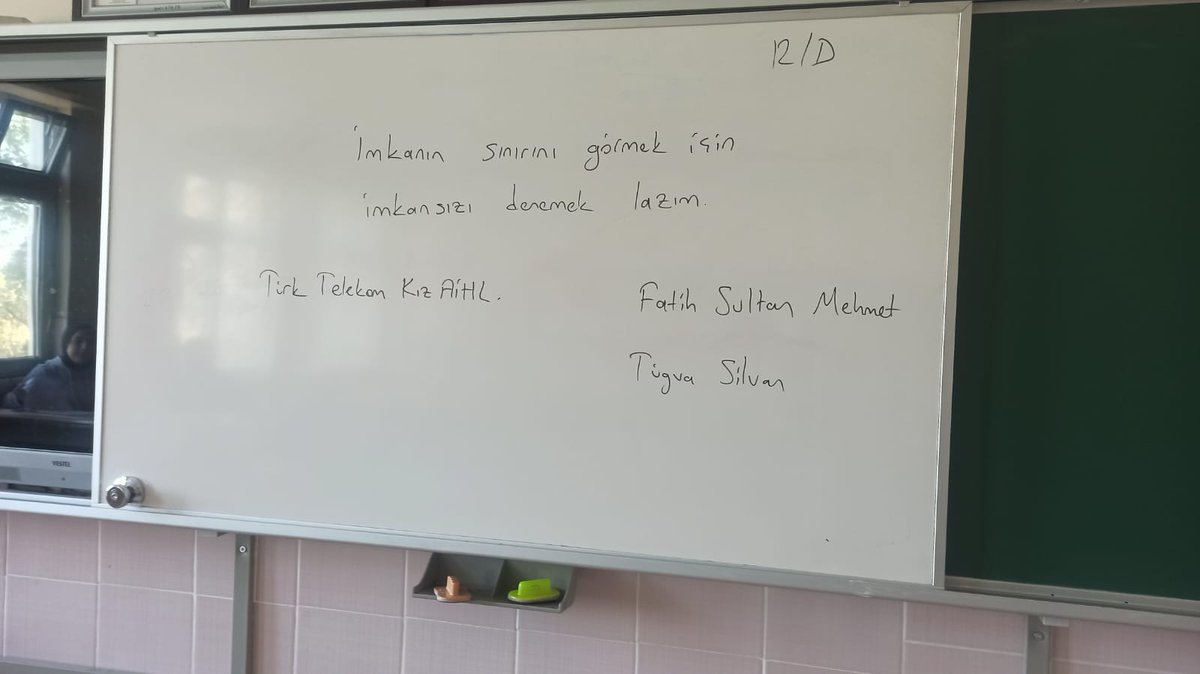 12/D
İmkanın sınırını görmek için
imkansızı denemek lazım.
Türk Telekom Kız AİHL.
Fatih Sultan Mehmet
Tügva Silvan
VESTEL